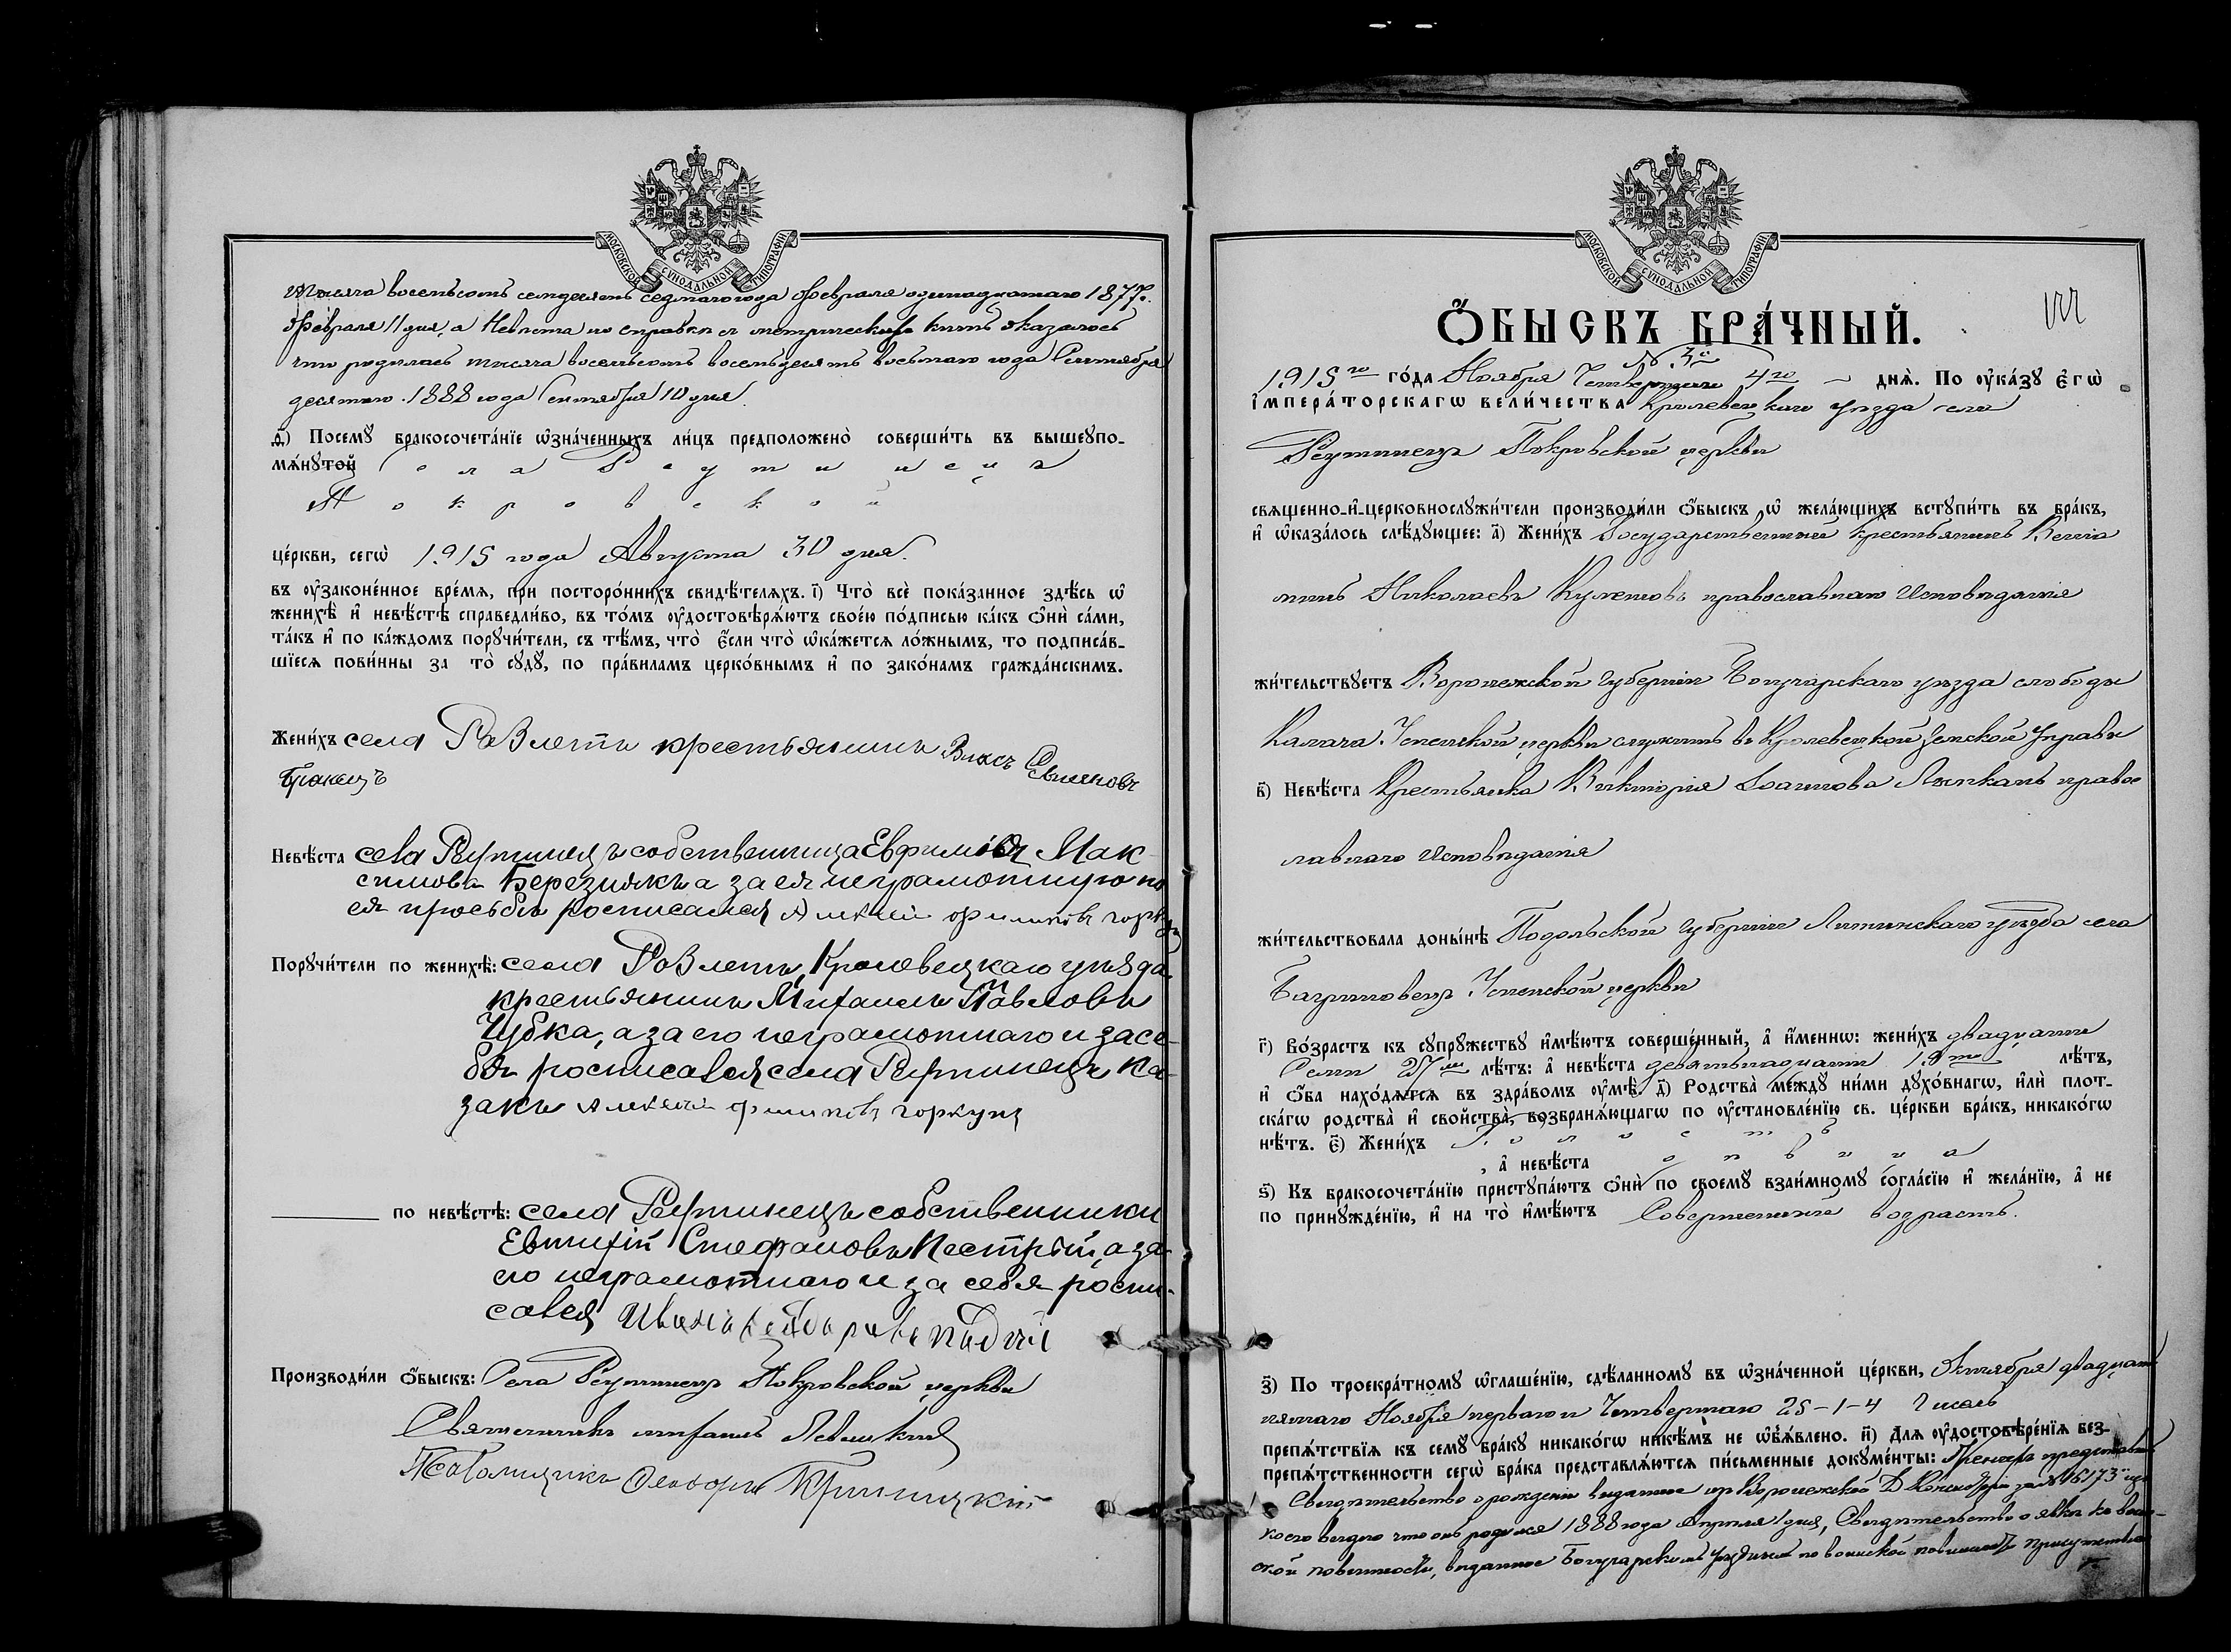 МОСКОВСКОЙ СѴНОДАЛЬНОЙ ТИПОГРАФІИ
тысяча восемьсотъ семдесятъ седмаго года Февраля одинадцатаго 1877 г.
Февраля 11 дня, а Невѣста по справкѣ съ метрическихъ книгъ оказалось
что родилась тысяча восемьсотъ восемьдесятъ восьмаго года Сентября
десятаго 1888 года Сентября 10 дня.
ѳ҃) Посемꙋ бракосочета́нїе ѡ҆зна́ченныхъ ли́цъ предположено̀ соверши́ть въ вышеупо-
мѧ́нꙋтой села Реутинецъ
Покровской
це́ркви, сегѡ̀ 1915 года Августа 30 дня.
въ ᲂу҆законе́нное вре́мѧ, при посторо́ннихъ свидѣ́телѧхъ. і҃) Что̀ всѐ пока́занное здѣ́сь ѡ҆
женихѣ̀ и҆ невѣ́стѣ справедли́во, въ то́мъ ᲂу҆достовѣрѧ́ютъ своє́ю по́дписью ка́къ ѻ҆нѝ са́ми,
та́къ и҆ по ка́ждомъ порꙋчи́тели, съ тѣ́мъ, что̀ є҆́сли что̀ ѡ҆ка́жетсѧ ло́жнымъ, то подписа́в-
шїесѧ пови́нны за то̀ сꙋдꙋ̀, по пра́виламъ церко́внымъ и҆ по зако́намъ гражда́нскимъ.
Жени́хъ села Ровлеты крестьянинъ Власъ
Невѣ́ста села Реутинецъ собственница Евфимія Мак-
симова Березнякъ а за ея неграмотную по
ея просьбѣ росписался Алексѣй Филиповъ Горкуш
Порꙋчи́тели по женихѣ̀: села Ровлеты, Кролевецкаго уѣзда
крестьянинъ Михаилъ Павловъ
Чубка, а за его неграмотнаго и за се-
бя росписался села Реутинецъ ка-
закъ Алексѣй Филиповъ Горкуш
по невѣ́стѣ: села Реутинецъ собственники
Евтихій Стефановъ Пестрый, а за
его неграмотнаго и за себя роспи-
сался Иванъ
Производи́ли ѻ҆́быскъ: Села Реутинецъ Покровской церкви
Священникъ Михаилъ Левицкій
Псаломщикъ Ѳеодоръ Криницкій
МОСКОВСКОЙ СѴНОДАЛЬНОЙ ТИПОГРАФІИ
Ѻ҆́БЫСКЪ БРА́ЧНЫЙ.
№ 3й
1915го го́да Ноября Четвертаго 4го днѧ̀. По ᲂу҆ка́зꙋ є҆гѡ̀
і҆мпера́торскагѡ вели́чества Кролевецкаго уѣзда села
Реутинецъ Покровской церкви
свѧщенно-и҆-церковнослꙋжи́тели производи́ли ѻ҆́быскъ ѡ҆ жела́ющихъ встꙋпи́ть въ бра́къ,
и҆ ѡ҆каза́лось слѣ́дꙋющее: а҃) Жени́хъ Государственный крестьянинъ Венiа
минъ Николаевъ православнаго исповѣданія
жи́тельствꙋетъ Воронежской губерніи Богучарскаго уѣзда слободы
Калача Успенской церкви служитъ въ Кролевецкой Земской Управѣ
в҃) Невѣ́ста Крестьянка Викторія Іоаннова православ
лавнаго исповѣданія
жи́тельствовала доны́нѣ Подольской губерніи Литинскаго уѣзда села
Багриновецъ Успенской церкви
г҃) Во́зрастъ къ сꙋпрꙋ́жествꙋ и҆мѣ́ютъ соверше́нный, а҆ и҆́менно: жени́хъ двадцати
Семи 27ми лѣ́тъ: а҆ невѣ́ста девятьнадцати 19ти лѣ́тъ,
и҆ ѻ҆́ба нахо́дѧтсѧ въ здра́вомъ ᲂу҆мѣ̀. д҃) Родства̀ ме́ждꙋ ни́ми дꙋхо́внагѡ, и҆лѝ плот-
ска́гѡ родства̀ и҆ свойства̀, возбранѧ́ющагѡ по ᲂу҆становле́нїю св. це́ркви бра́къ, никако́гѡ
нѣ́тъ. є҃) Жени́хъ Холостъ
, а҆ невѣ́ста дѣвица
ѕ҃) Къ бракосочета́нїю пристꙋпа́ютъ ѻ҆нѝ по своемꙋ̀ взаи́мномꙋ согла́сїю и҆ жела́нїю, а҆ не
по принꙋжде́нїю, и҆ на то̀ и҆мѣ́ютъ Совершенный возрастъ.
з҃) По троекра́тномꙋ ѡ҆глаше́нїю, сдѣ́ланномꙋ въ ѡ҆зна́ченной це́ркви, Октября двадцать
пятаго Ноября перваго и Четвертаго 25-1-4 Числъ
препѧ́тствїѧ къ семꙋ̀ бра́кꙋ никако́гѡ никѣ́мъ не ѡ҆б̾ѧ́влено. и҃) Длѧ ᲂу҆достовѣре́нїѧ без-
препѧ́тственности сегѡ̀ бра́ка представлѧ́ютсѧ пи́сьменные докꙋме́нты: Женихъ представилъ
Свидѣтельство о рожденіи выданное изъ Воронежской Д. Консисторіи за № 16173 изъ
коего видно что онъ родился 1888 года Апрѣля 1 дня, Свидѣтельство о явкѣ къ воин-
ской повинности, выданное Богучарскимъ Уѣзднымъ по воинской повинности присутствіемъ